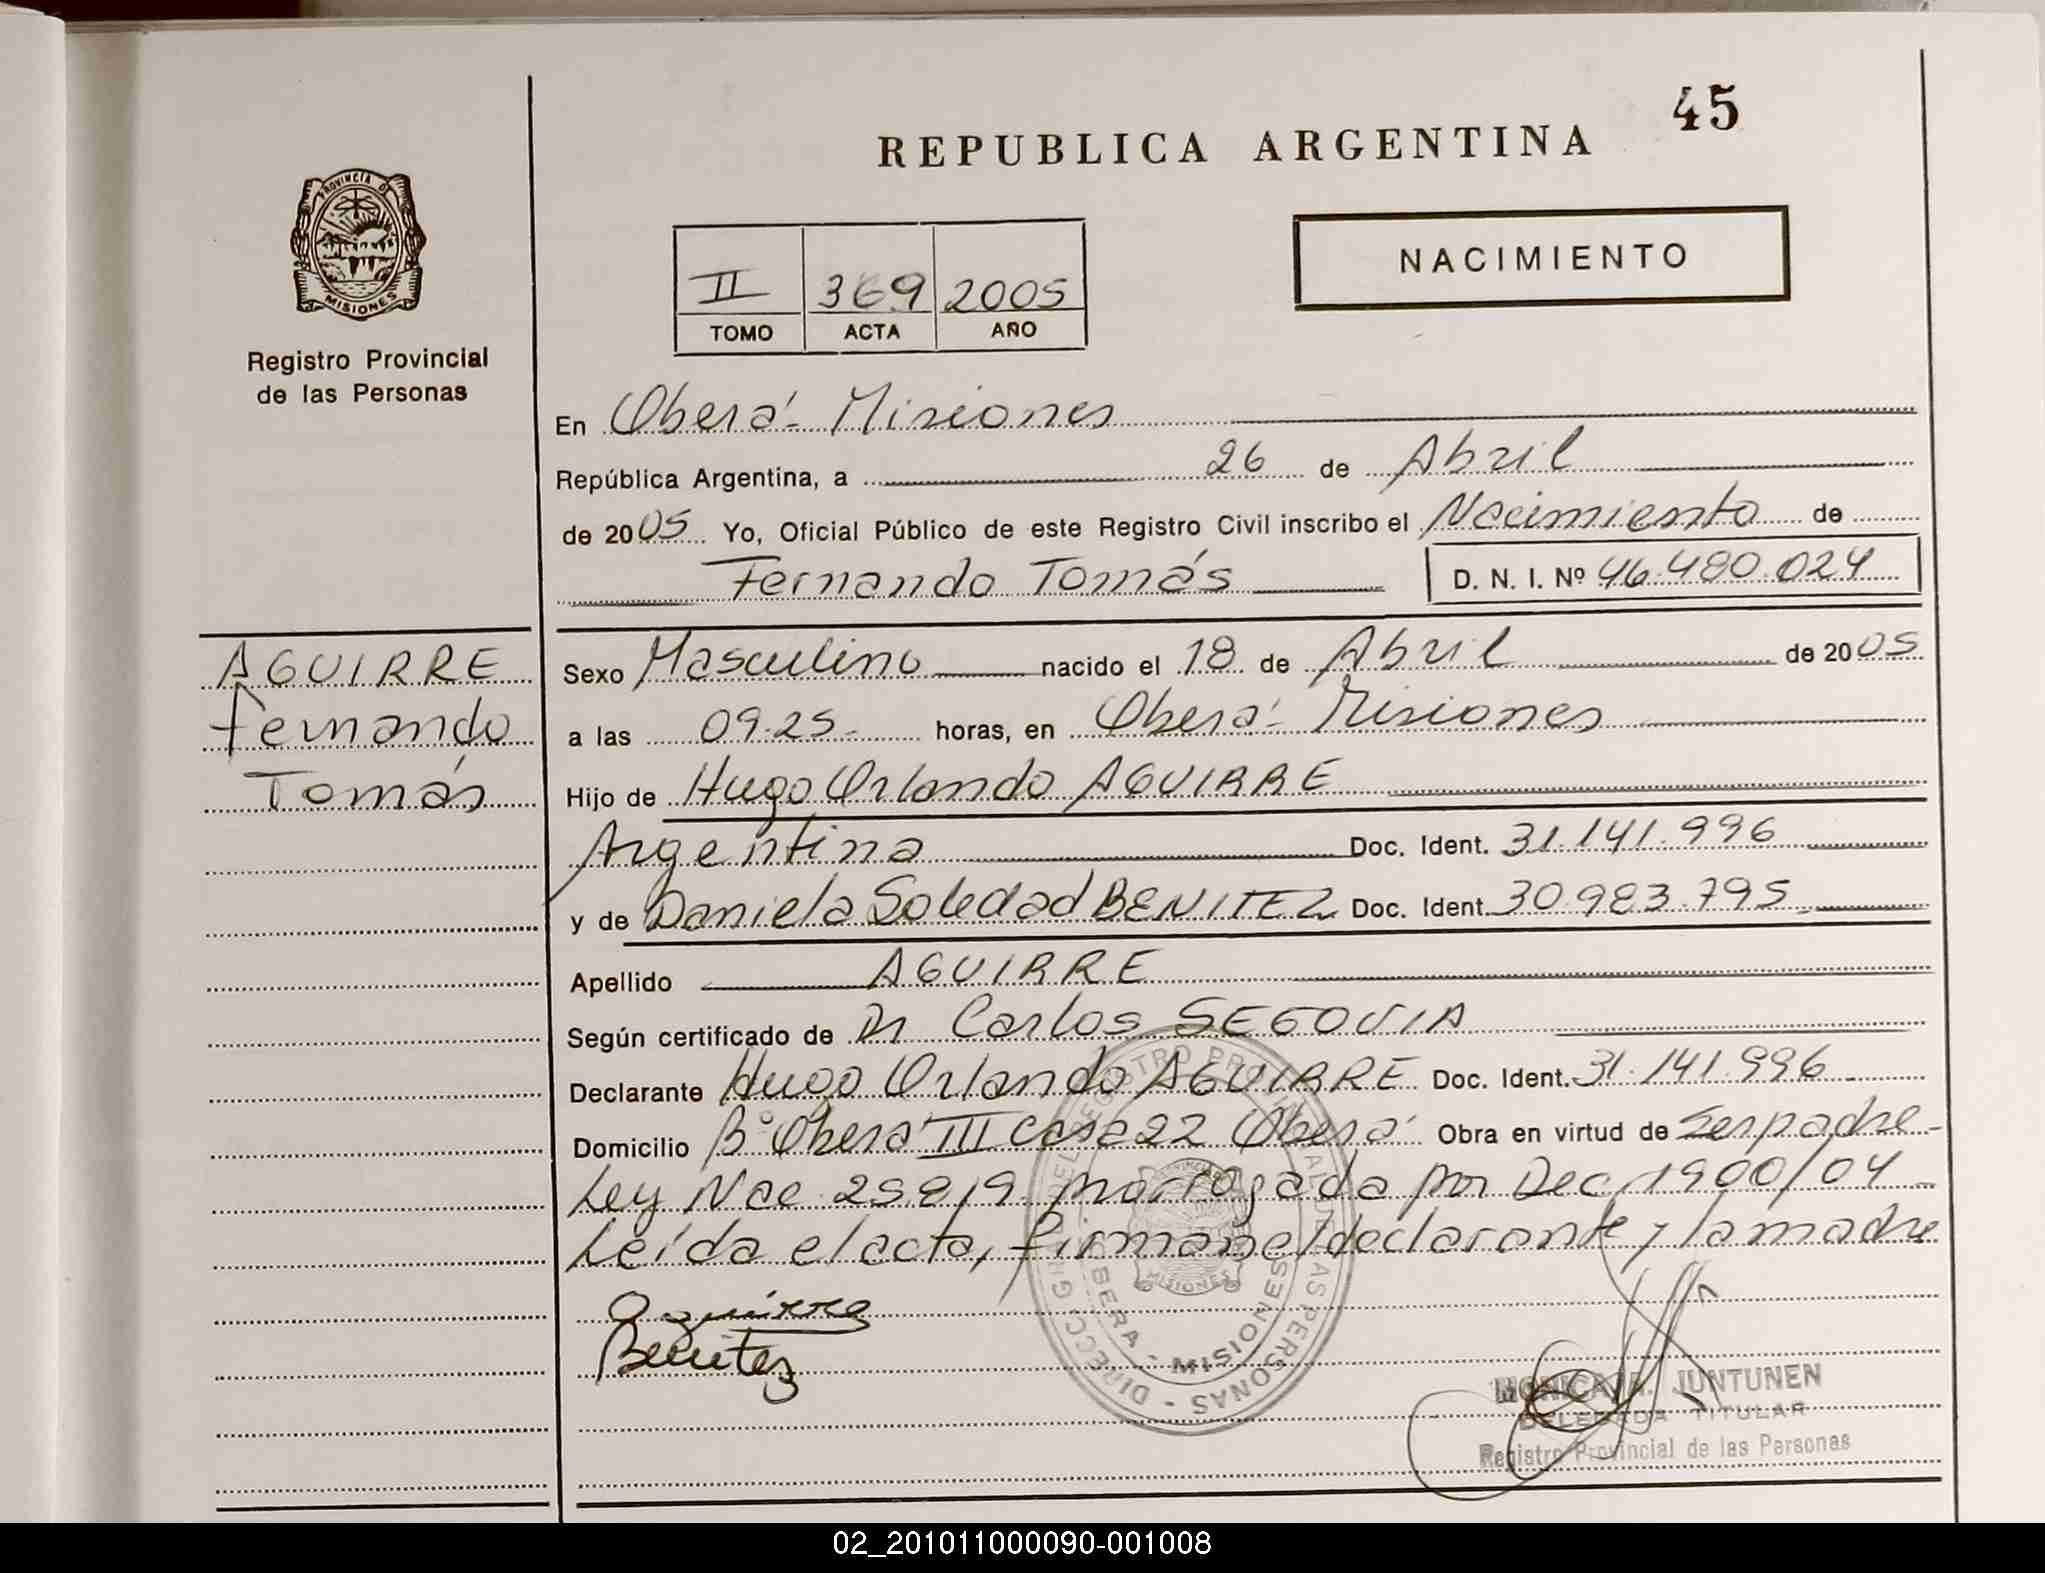 45
REPUBLICA ARGENTINA
PROVINCIA DE
MISIONES
Registro Provincial
de las Personas
NACIMIENTO
II 369 2005
TOMO ACTA AÑO
En Oberá - Misiones
República Argentina, a 26 de Abril
de 2005 Yo, Oficial Público de este Registro Civil inscribo el Nacimiento de
Fernando Tomás D. N. I. Nº 46.480.024
AGUIRRE
Fernando
Tomás
Sexo Masculino nacido el 18 de Abril de 2005
a las 09.25 - horas, en Oberá - Misiones
Hijo de Hugo Orlando AGUIRRE
Argentina Doc. Ident. 31.141.996
y de Daniela Soledad BENITEZ Doc. Ident. 30.983.795 -
Apellido AGUIRRE
Según certificado de Dr Carlos SEGOVIA
Declarante Hugo Orlando AGUIRRE Doc. Ident. 31.141.996 -
Domicilio Bº Oberá III Casa 22 Oberá Obra en virtud de Ser padre -
Ley Nac. 25.819 prorrogada por Dec. 1900/04 -
Leída el acta, firman el declarante y la madre
Aguirre
Benitez
REGISTRO PROVINCIAL DE LAS PERSONAS
OBERA - MISIONES
MISIONES
MONICA R. JUNTUNEN
DELEGADA TITULAR
Registro Provincial de las Personas
02_201011000090-001008